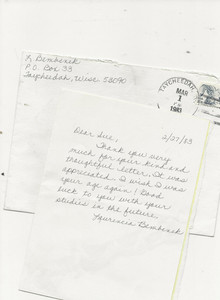 L Bembenek
P.O. Box 33
Taycheedah, Wisc. 53090
TAYCHEEDAH,
MAR
1
1983
2/27/83
Dear Sue,
Thank you very
much for your kind and
thoughtful letter. It was
appreciated. I wish I was
your age again! Good
luck to you with your
studies in the future.
Lawrencia Bembenek